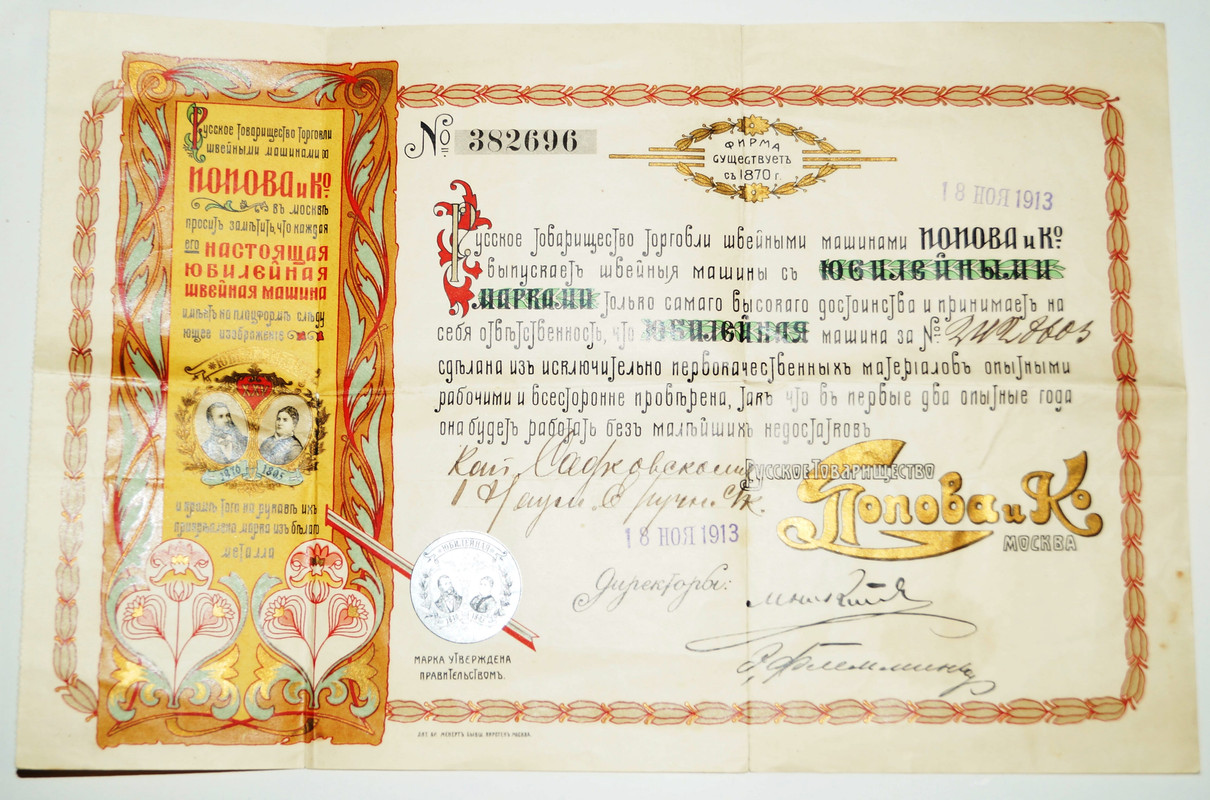 Русское Товарищество Торговли
швейными машинами
ПОПОВА и Ко
въ москвѣ
проситъ замѣтить, что каждая
его НАСТОЯЩАЯ
ЮБИЛЕЙНАЯ
ШВЕЙНАЯ МАШИНА
имѣетъ на платформѣ слѣду
ющее изображенiе
1870 1895
и кромѣ того на рукавѣ ихъ
прикрѣплена марка изъ бѣлаго
металла
№ 382696
ФИРМА
СУЩЕСТВУЕТЪ
съ 1870 г.
18 НОЯ 1913
Русское Товарищество Торговли швейными машинами ПОПОВА и Ко
выпускаетъ швейныя машины съ ЮБИЛЕЙНЫМИ
МАРКАМИ только самаго высокаго достоинства и принимаетъ на
себя отвѣтственность, что ЮБИЛЕЙНАЯ машина за №
сдѣлана изъ исключительно первокачественныхъ матерiаловъ опытными
рабочими и всесторонне провѣрена, такъ что въ первые два опытные года
она будетъ работать безъ малѣйшихъ недостатковъ
РУССКОЕ ТОВАРИЩЕСТВО
Попова и Ко
МОСКВА
18 НОЯ 1913
Директоры:
ЮБИЛЕЙНАЯ
МАРКА УТВЕРЖДЕНА
ПРАВИТЕЛЬСТВОМЪ.